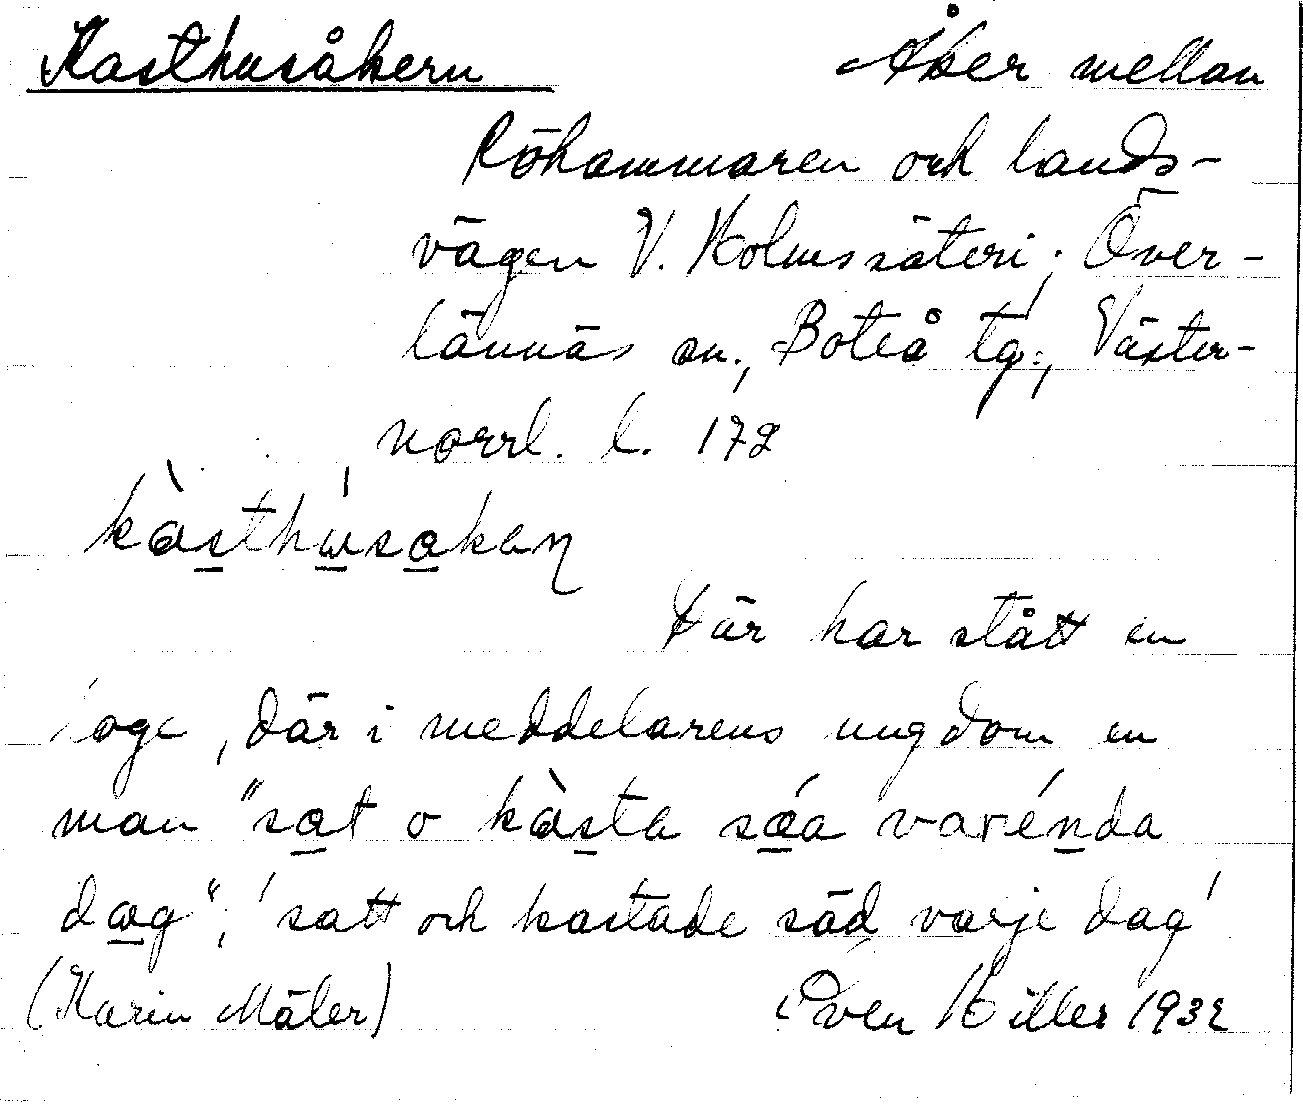 Kasthusåkern Åker mellan
Röhammaren och lands-
vägen V. Holmssäteri; Över-
lännäs sn., Boteå tg:, Väster-
norrl. l. 172
kàsthúsakaɳ
Där har stått en
loge, där i meddelarens ungdom en
man "sat o kàsta sáa varénda
dag", 'satt och kastade säd varje dag'
(Karin Mäler) Sven Hiller 1932